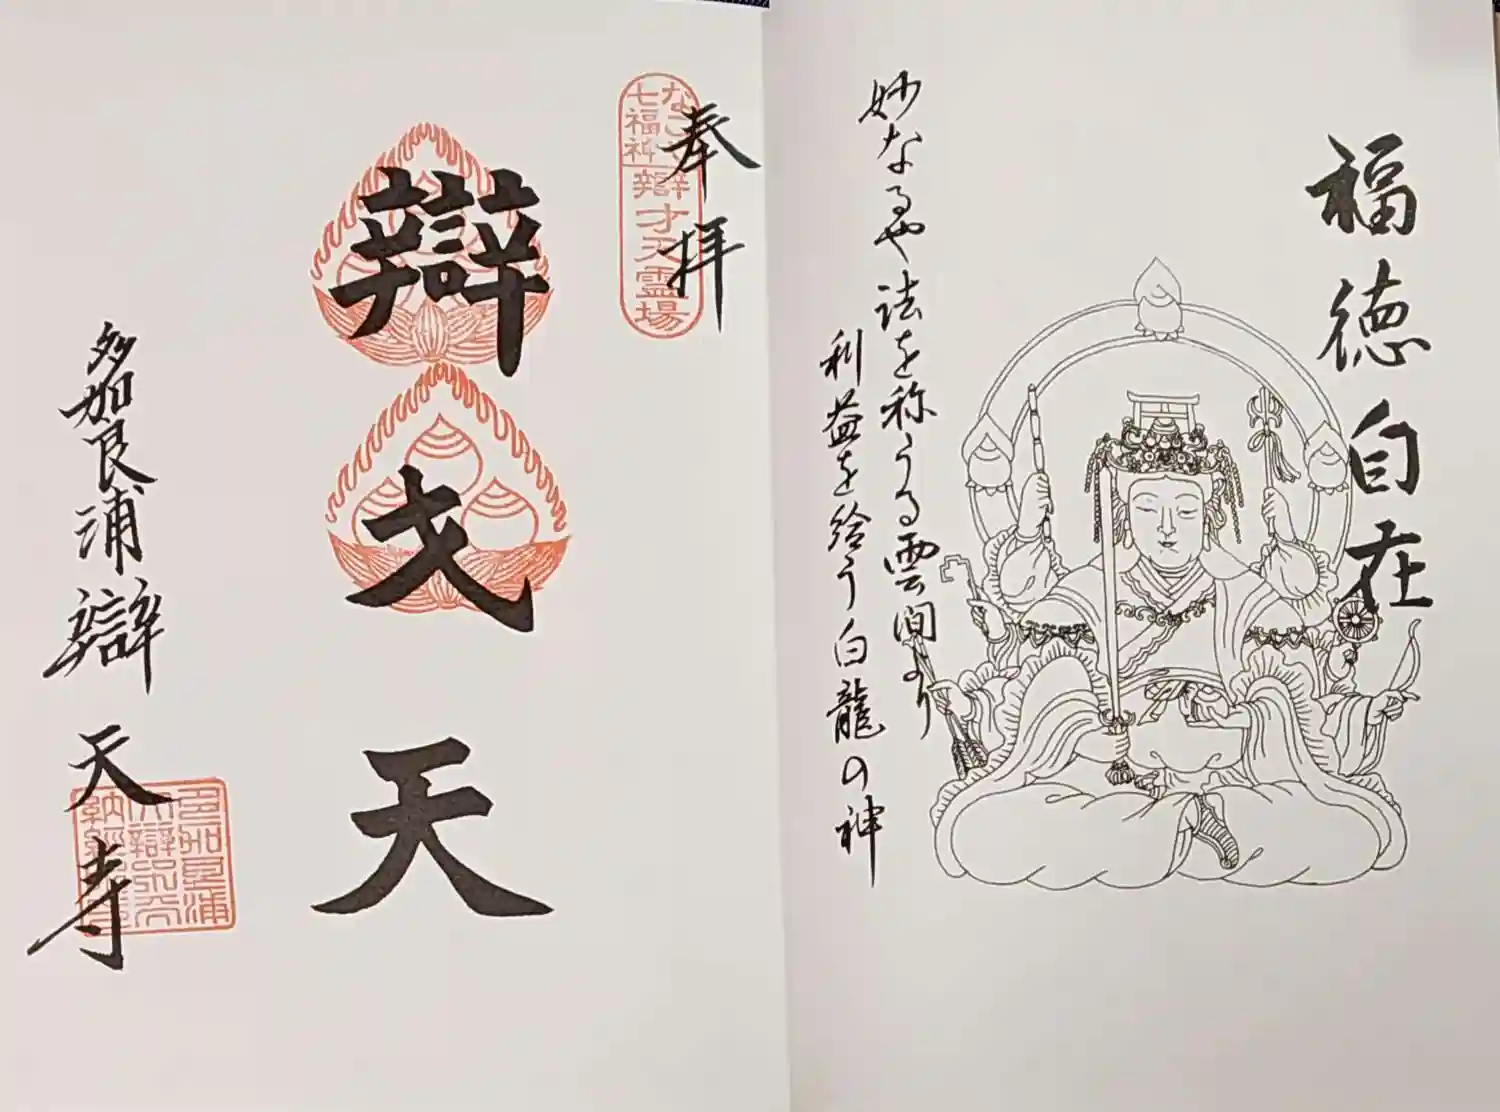 福徳自在
妙なるや法を称うる雲間より
利益を給う白龍の神
奉拝
なごや
七福神
辯才天霊場
辯才天
多加良浦辯天寺
多加良浦
辯天
納経